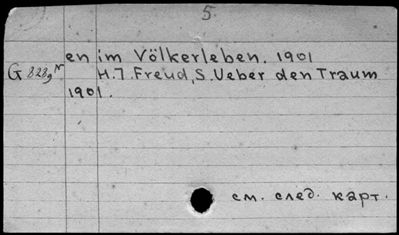 5.
en im Völkerleben. 1901
G 828g N H.7. Freud, S. Ueber den Traum
1901.
см. след. карт.